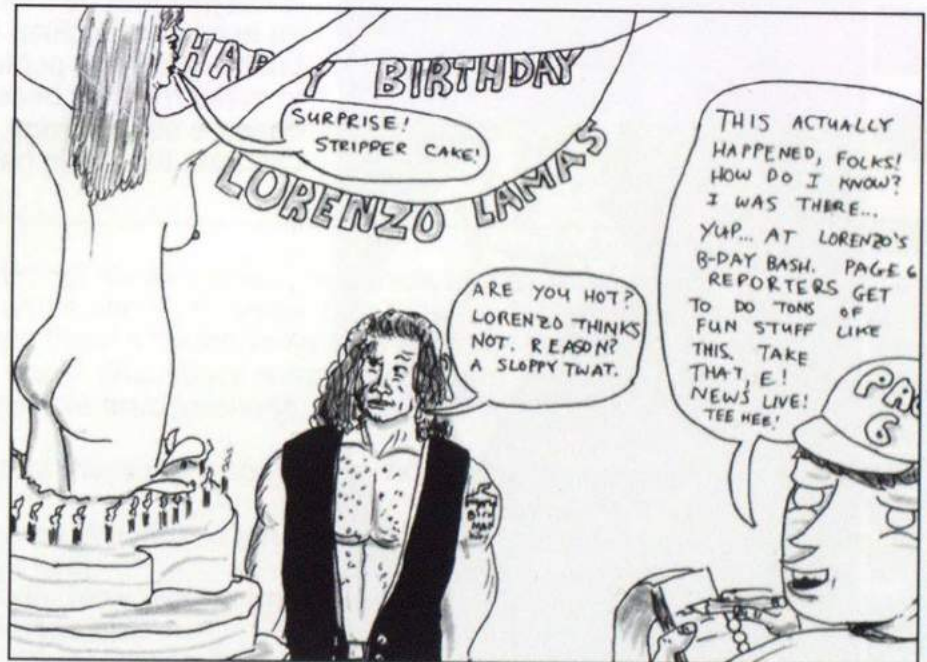 HAPPY BIRTHDAY
LORENZO LAMAS
SURPRISE!
STRIPPER CAKE!
ARE YOU HOT?
LORENZO THINKS
NOT. REASON?
A SLOPPY TWAT.
THIS ACTUALLY
HAPPENED, FOLKS!
HOW DO I KNOW?
I WAS THERE...
YUP... AT LORENZO'S
B-DAY BASH. PAGE 6
REPORTERS GET
TO DO TONS OF
FUN STUFF LIKE
THIS. TAKE
THAT, E!
NEWS LIVE!
TEE HEE!
6